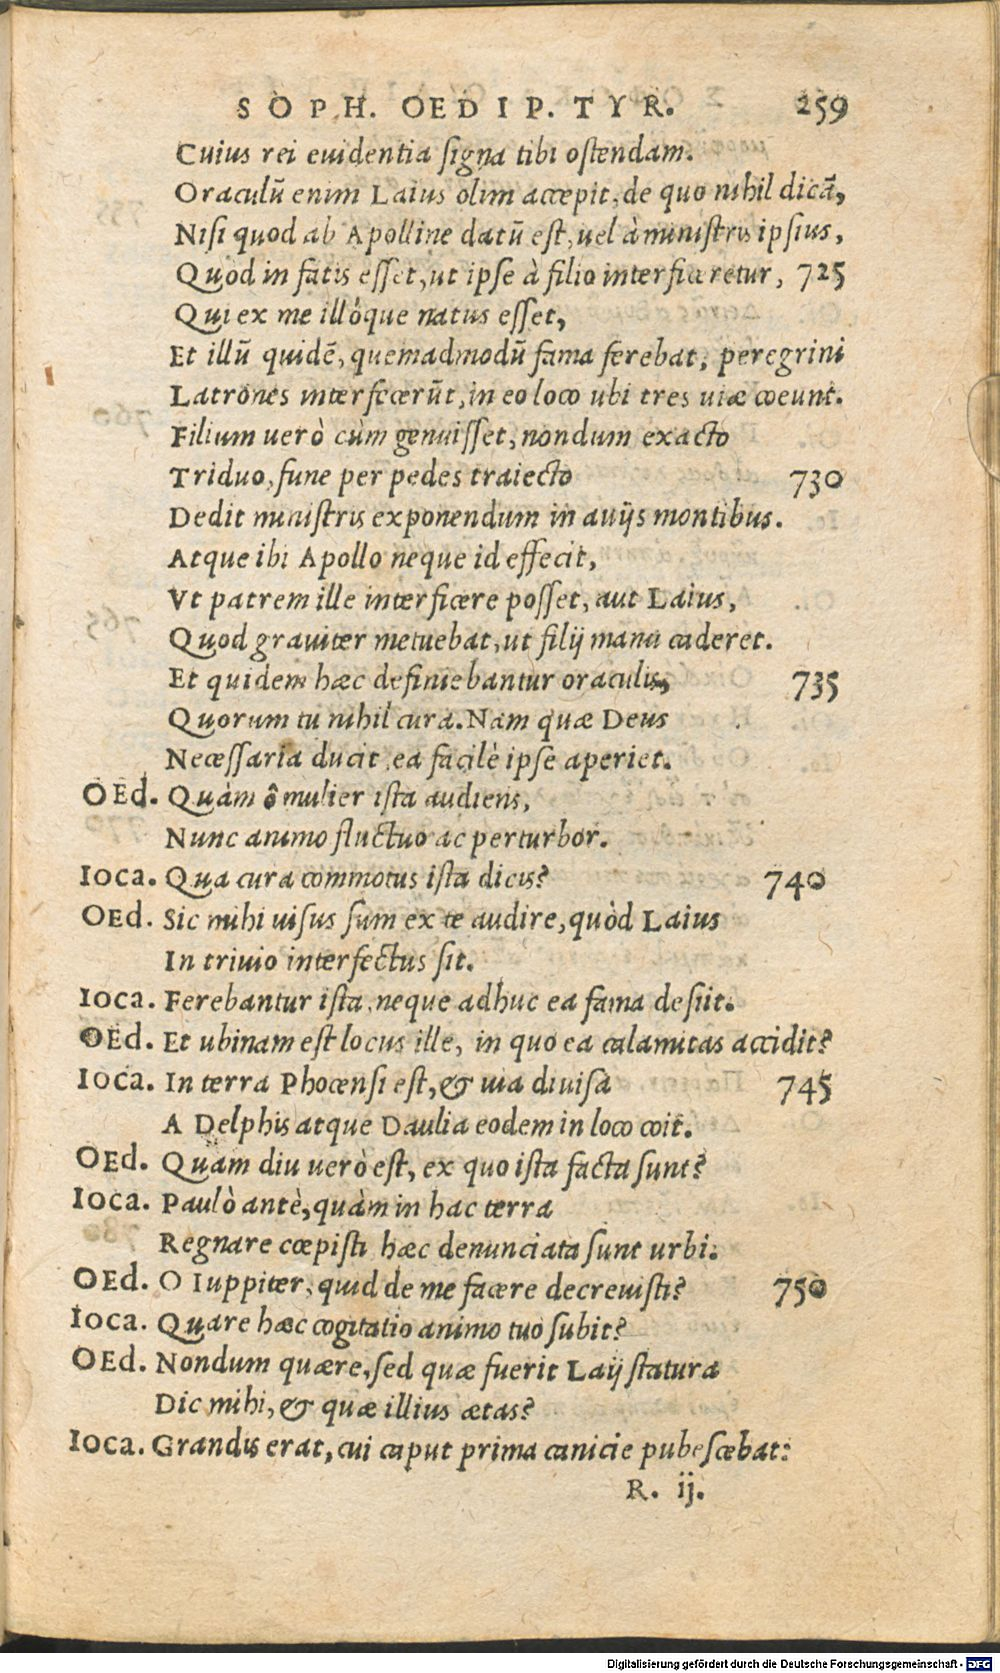 SOPH. OEDIP. TYR. 259
Cuius rei euidentia signa tibi ostendam.
Oraculũ enim Laius olim accepit, de quo nihil dicã,
Nisi quod ab Apolline datũ est, uel à ministris ipsius,
Quòd in fatis esset, ut ipse à filio interficeretur, 725
Qui ex me illóque natus esset,
Et illũ quidẽ, quemadmodũ fama ferebat, peregrini
Latrones interfecerũt, in eo loco ubi tres uiæ coeunt.
Filium uerò cùm genuisset, nondum exacto
Triduo, fune per pedes traiecto 730
Dedit ministris exponendum in auijs montibus.
Atque ibi Apollo neque id effecit,
Vt patrem ille interficere posset, aut Laius,
Quod grauiter metuebat, ut filij manu caderet.
Et quidem hæc definiebantur oraculis, 735
Quorum tu nihil cura. Nam quæ Deus
Necessaria ducit, ea facilè ipse aperiet.
OEd. Quàm ô mulier ista audiens,
Nunc animo fluctuo ac perturbor.
Ioca. Qua cura commotus ista dicis? 740
OEd. Sic mihi uisus sum ex te audire, quòd Laius
In triuio interfectus sit.
Ioca. Ferebantur ista, neque adhuc ea fama desiit.
OEd. Et ubinam est locus ille, in quo ea calamitas accidit?
Ioca. In terra Phocensi est, & uia diuisa 745
A Delphis atque Daulia eodem in loco coit.
OEd. Quam diu uerò est, ex quo ista facta sunt?
Ioca. Paulò antè, quàm in hac terra
Regnare cœpisti hæc denunciata sunt urbi.
OEd. O Iuppiter, quid de me facere decreuisti? 750
Ioca. Quare hæc cogitatio animo tuo subit?
OEd. Nondum quære, sed quæ fuerit Laij statura
Dic mihi, & quæ illius ætas?
Ioca. Grandis erat, cui caput prima canicie pubescebat:
R. ij.
Digitalisierung gefördert durch die Deutsche Forschungsgemeinschaft - DFG